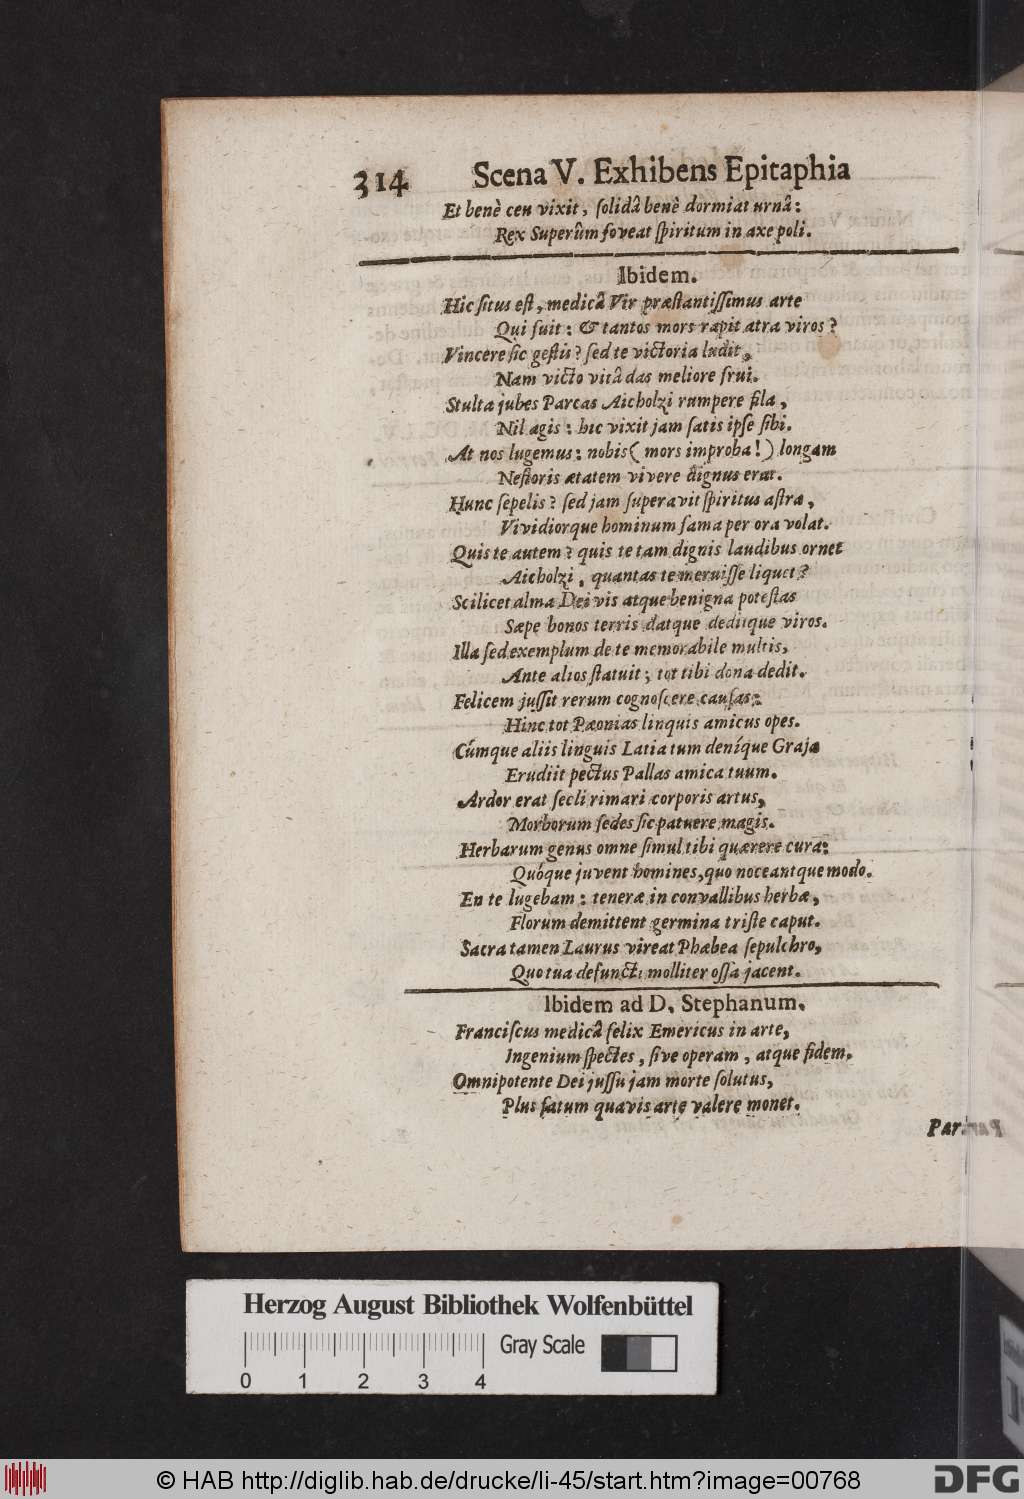 314 Scena V. Exhibens Epitaphia
Et benè ceu vixit, ſolidâ benè dormiat urnâ:
Rex Superûm foveat ſpiritum in axe poli.
Ibidem.
Hic ſitus eſt, medicâ Vir præſtantiſſimus arte
Qui fuit: & tantos mors rapit atra viros?
Vincere ſic geſtis? ſed te victoria ludit,
Nam victo vitâ das meliore frui.
Stulta jubes Parcas Aicholzi rumpere fila,
Nil agis: hic vixit jam ſatis ipſe ſibi.
At nos lugemus: nobis (mors improba!) longam
Neſtoris ætatem vivere dignus erat.
Hunc ſepelis? ſed jam ſuperavit ſpiritus aſtra,
Vividiorque hominum fama per ora volat.
Quis te autem? quis te tam dignis laudibus ornet
Aicholzi, quantas te meruiſſe liquet?
Scilicet alma Dei vis atque benigna poteſtas
Sæpe bonos terris datque deditque viros.
Illa ſed exemplum de te memorabile multis,
Ante alios ſtatuit; tot tibi dona dedit.
Felicem juſſit rerum cognoſcere cauſas:
Hinc tot Pæonias linquis amicus opes.
Cúmque aliis linguis Latia tum deníque Graja
Erudiit pectus Pallas amica tuum.
Ardor erat ſecli rimari corporis artus,
Morborum ſedes ſic patuere magis.
Herbarum genus omne ſimul tibi quærere cura:
Quóque juvent homines, quo noceantque modo.
En te lugebam: teneræ in convallibus herbæ,
Florum demittent germina triſte caput.
Sacra tamen Laurus vireat Phœbea ſepulchro,
Quo tua defuncti molliter oſſa jacent.
Ibidem ad D. Stephanum.
Franciſcus medicâ felix Emericus in arte,
Ingenium ſpectes, ſive operam, atque fidem.
Omnipotente Dei juſſu jam morte ſolutus,
Plus fatum quavis arte valere monet.
Par.
Herzog August Bibliothek Wolfenbüttel
Gray Scale
0 1 2 3 4
© HAB http://diglib.hab.de/drucke/li-45/start.htm?image=00768
DFG